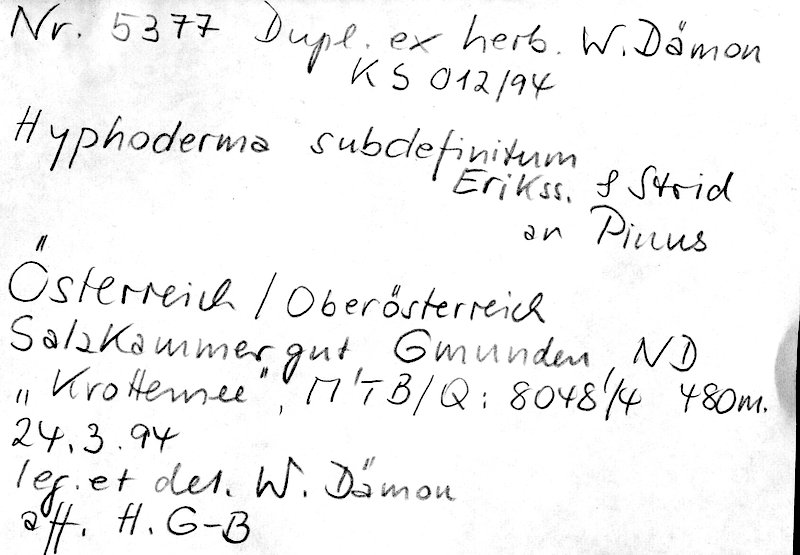 Nr. 5377 Dupl. ex herb. W. Dämon
KS 012/94
Hyphoderma subdefinitum
Erikss. & Strid
an Pinus
Österreich / Oberösterreich
Salzkammergut, Gmunden, ND
„Krottensee", MTB/Q: 8048/4 480m.
24.3.94
leg. et det. W. Dämon
aff. H. G-B